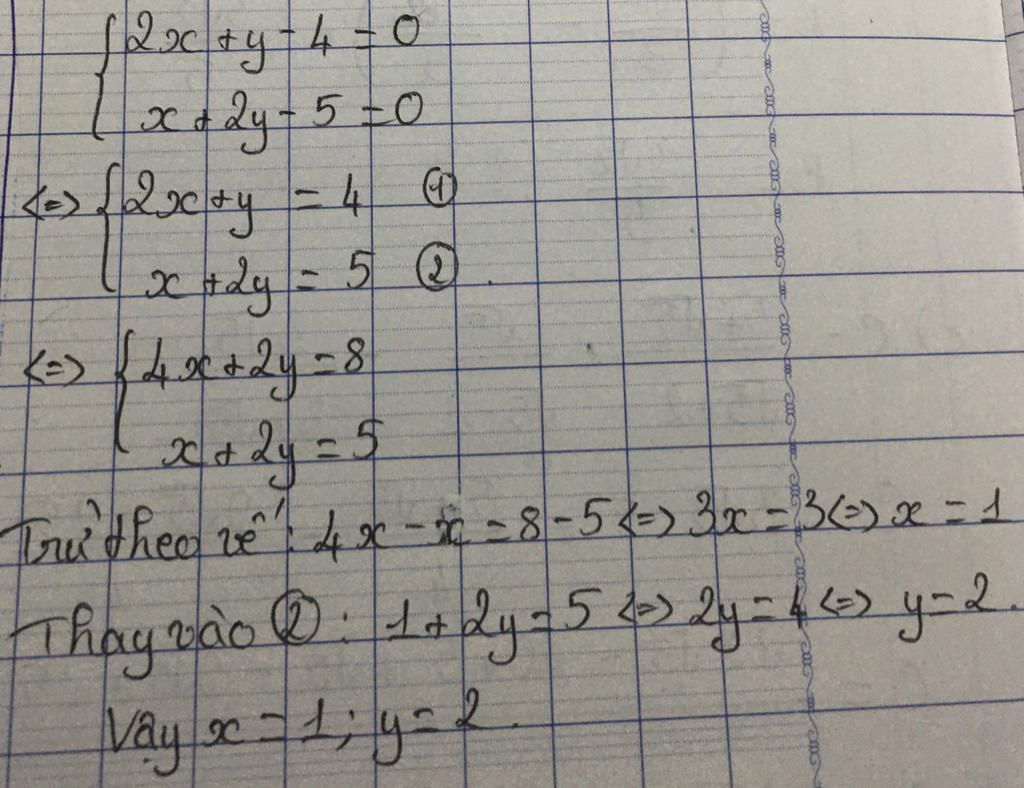 { 2x + y - 4 = 0
x + 2y - 5 = 0
<=> { 2x + y = 4 ①
x + 2y = 5 ② .
<=> { 4x + 2y = 8
x + 2y = 5
Trừ theo vế : 4x - x = 8 - 5 <=> 3x = 3 <=> x = 1
Thay vào ② : 1 + 2y = 5 <=> 2y = 4 <=> y = 2 .
Vậy x = 1 ; y = 2 .